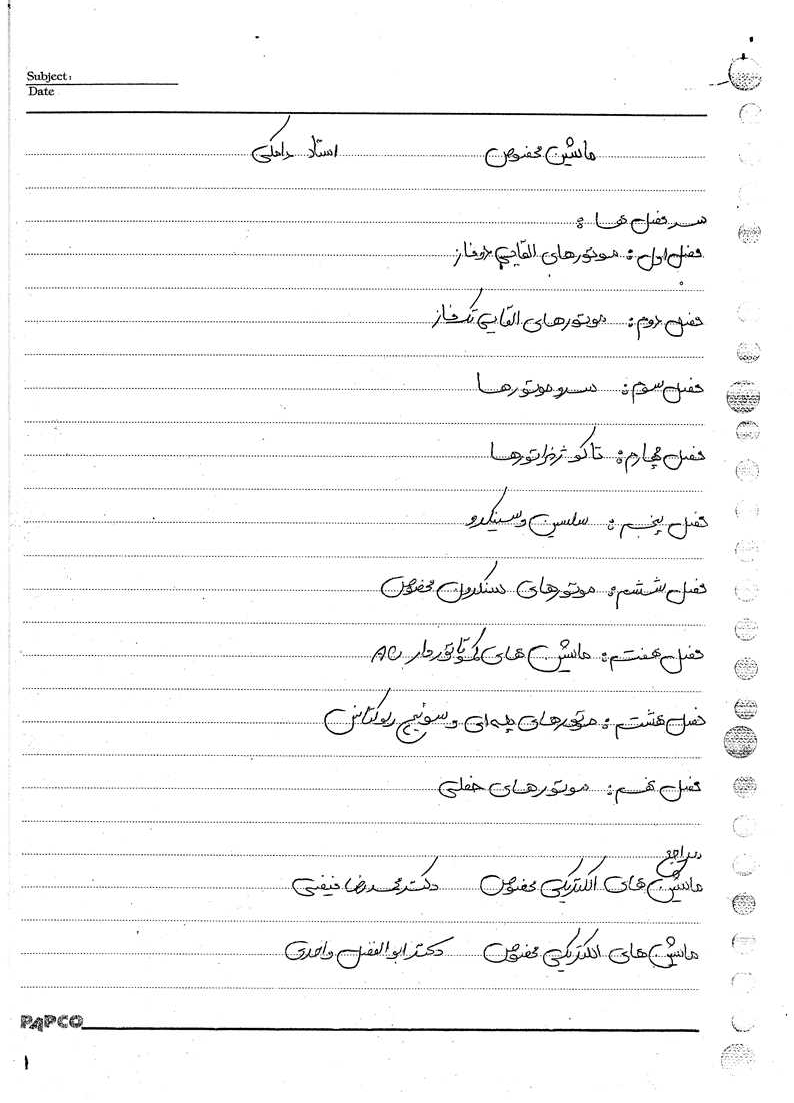 Subject:
Date
ماشین مخصوص استاد دامکی
سر فصل ها :
فصل اول : موتورهای القایی دوفاز
فصل دوم : موتورهای القایی تک فاز
فصل سوم : سرو موتورها
فصل چهارم : تاکو ژنراتورها
فصل پنجم : سلسین و سینکرو
فصل ششم : موتورهای سنکرون مخصوص
فصل هفتم : ماشین های کموتاتور دار AC
فصل هشتم : موتورهای پله ای و سوئیچ رلوکتانس
فصل نهم : موتورهای خطی
مراجع
ماشین های الکتریکی مخصوص دکتر محمدرضا فیضی
ماشین های الکتریکی مخصوص دکتر ابوالفضل واحدی
PAPCO
۱